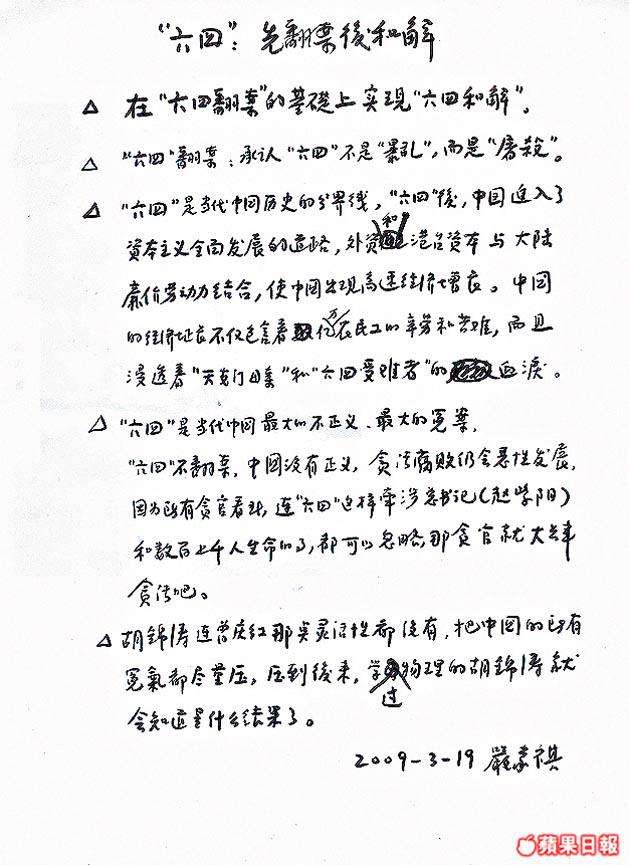 "六四"：先翻案後和解
△ 在"六四翻案"的基礎上实現"六四和解"。
△ "六四"翻案：承认"六四"不是"暴乱"，而是"屠殺"。
△ "六四"是当代中国历史的分界线，"六四"後，中国進入了
資本主义全面发展的道路，外資和港台資本与大陆
廉价劳动力結合，使中国出现高速经济增長。中国
的经济增長不仅包含着億万农民工的辛劳和苦难，而且
浸透着"天安门母亲"和"六四受难者"的血淚。
△ "六四"是当代中国最大的不正义、最大的冤案，
"六四"不翻案，中国没有正义，貪污腐败仍会恶性发展，
因为所有貪官看到，連"六四"这样牵涉总书记(赵紫阳)
和数百上千人生命的事，都可以忽略，那貪官就大胆
貪污吧。
△ 胡錦涛連曾庆红那点灵活性都没有，把中国的所有
冤氣都尽量压，压到後来，学过物理的胡錦涛就
会知道是什么結果了。
2009-3-19 嚴家祺
蘋果日報